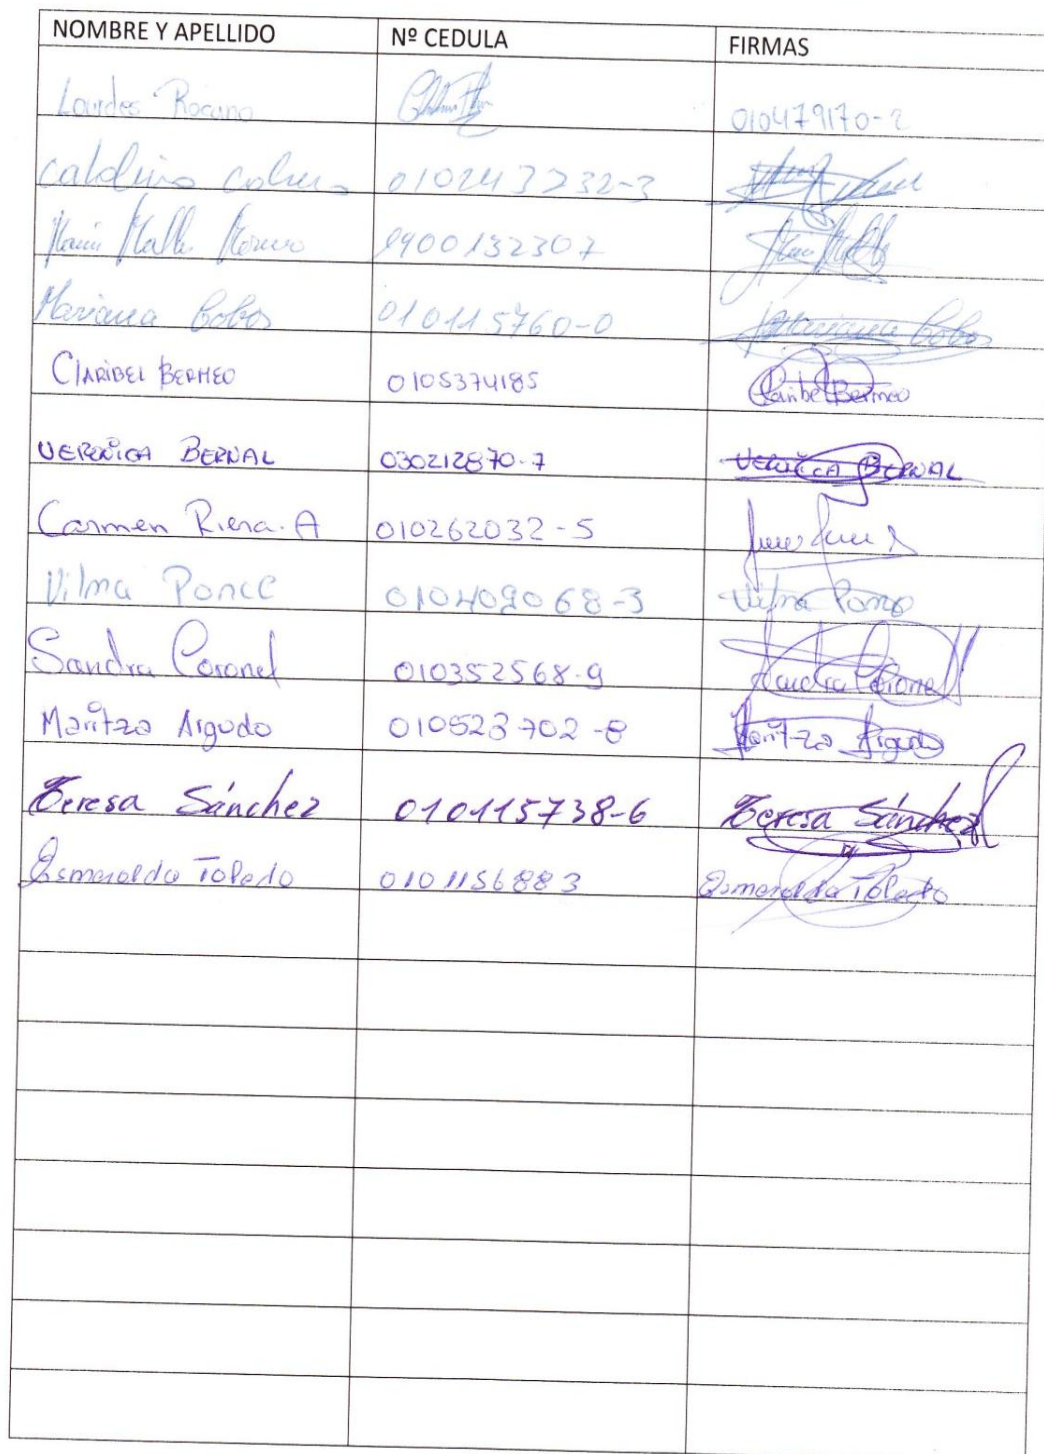 NOMBRE Y APELLIDO Nº CEDULA FIRMAS
Lourdes Rocano 010479170-2
catalina 010243232-3
1900132307
Mariana Cobos 010115760-0 Mariana Cobos
ClARIBEL BERMEO 0105374185 Claribel Bermeo
VERÓNICA BERNAL 030212870-7 VERÓNICA BERNAL
Carmen Riera. A 010262032-5
Vilma Ponce 010409068-3 Vilma Ponce
Sandra Coronel 010352568-9 Sandra Coronel
Maritza Argudo 010523702-8 Maritza Argudo
Teresa Sánchez 010115738-6 Teresa Sánchez
Esmeralda Toledo 0101156883 Esmeralda Toledo